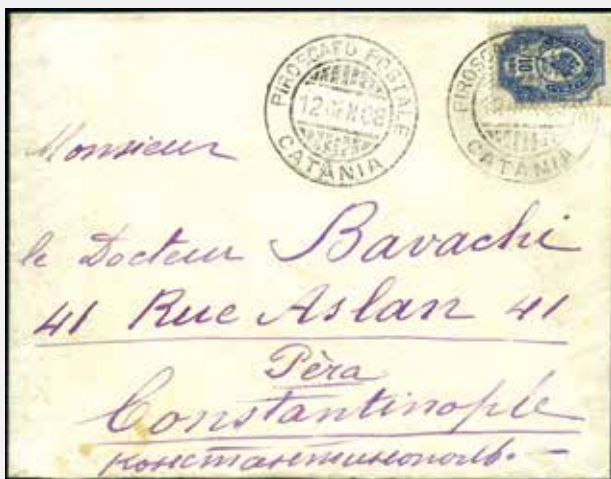 PIROSCAFO POSTALE
12 GEN 08
CATANIA
PIROSCAFO POSTALE
CATANIA
10
Monsieur
le Docteur Bavachi
41 Rue Aslan 41
Pèra
Constantinople
Константинополь. –